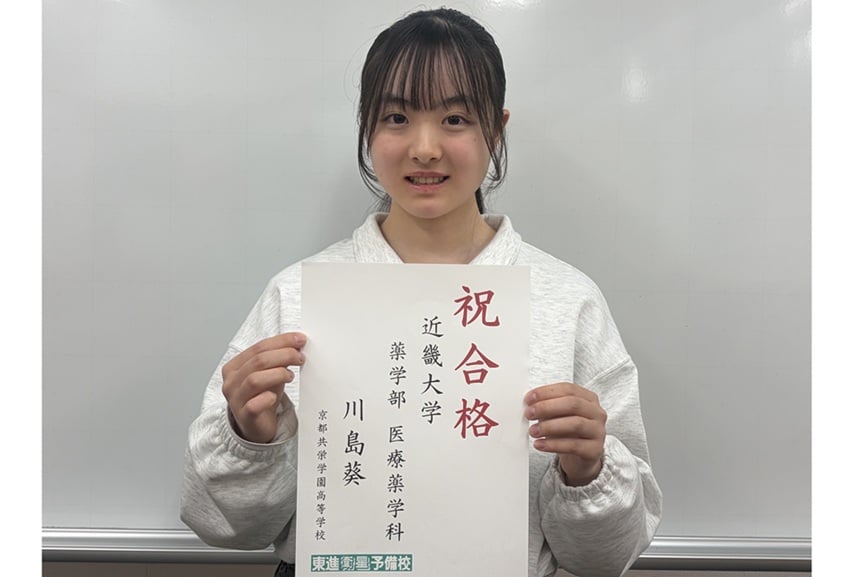 祝合格
近畿大学
薬学部 医療薬学科
川島葵
京都共栄学園高等学校
東進衛星予備校